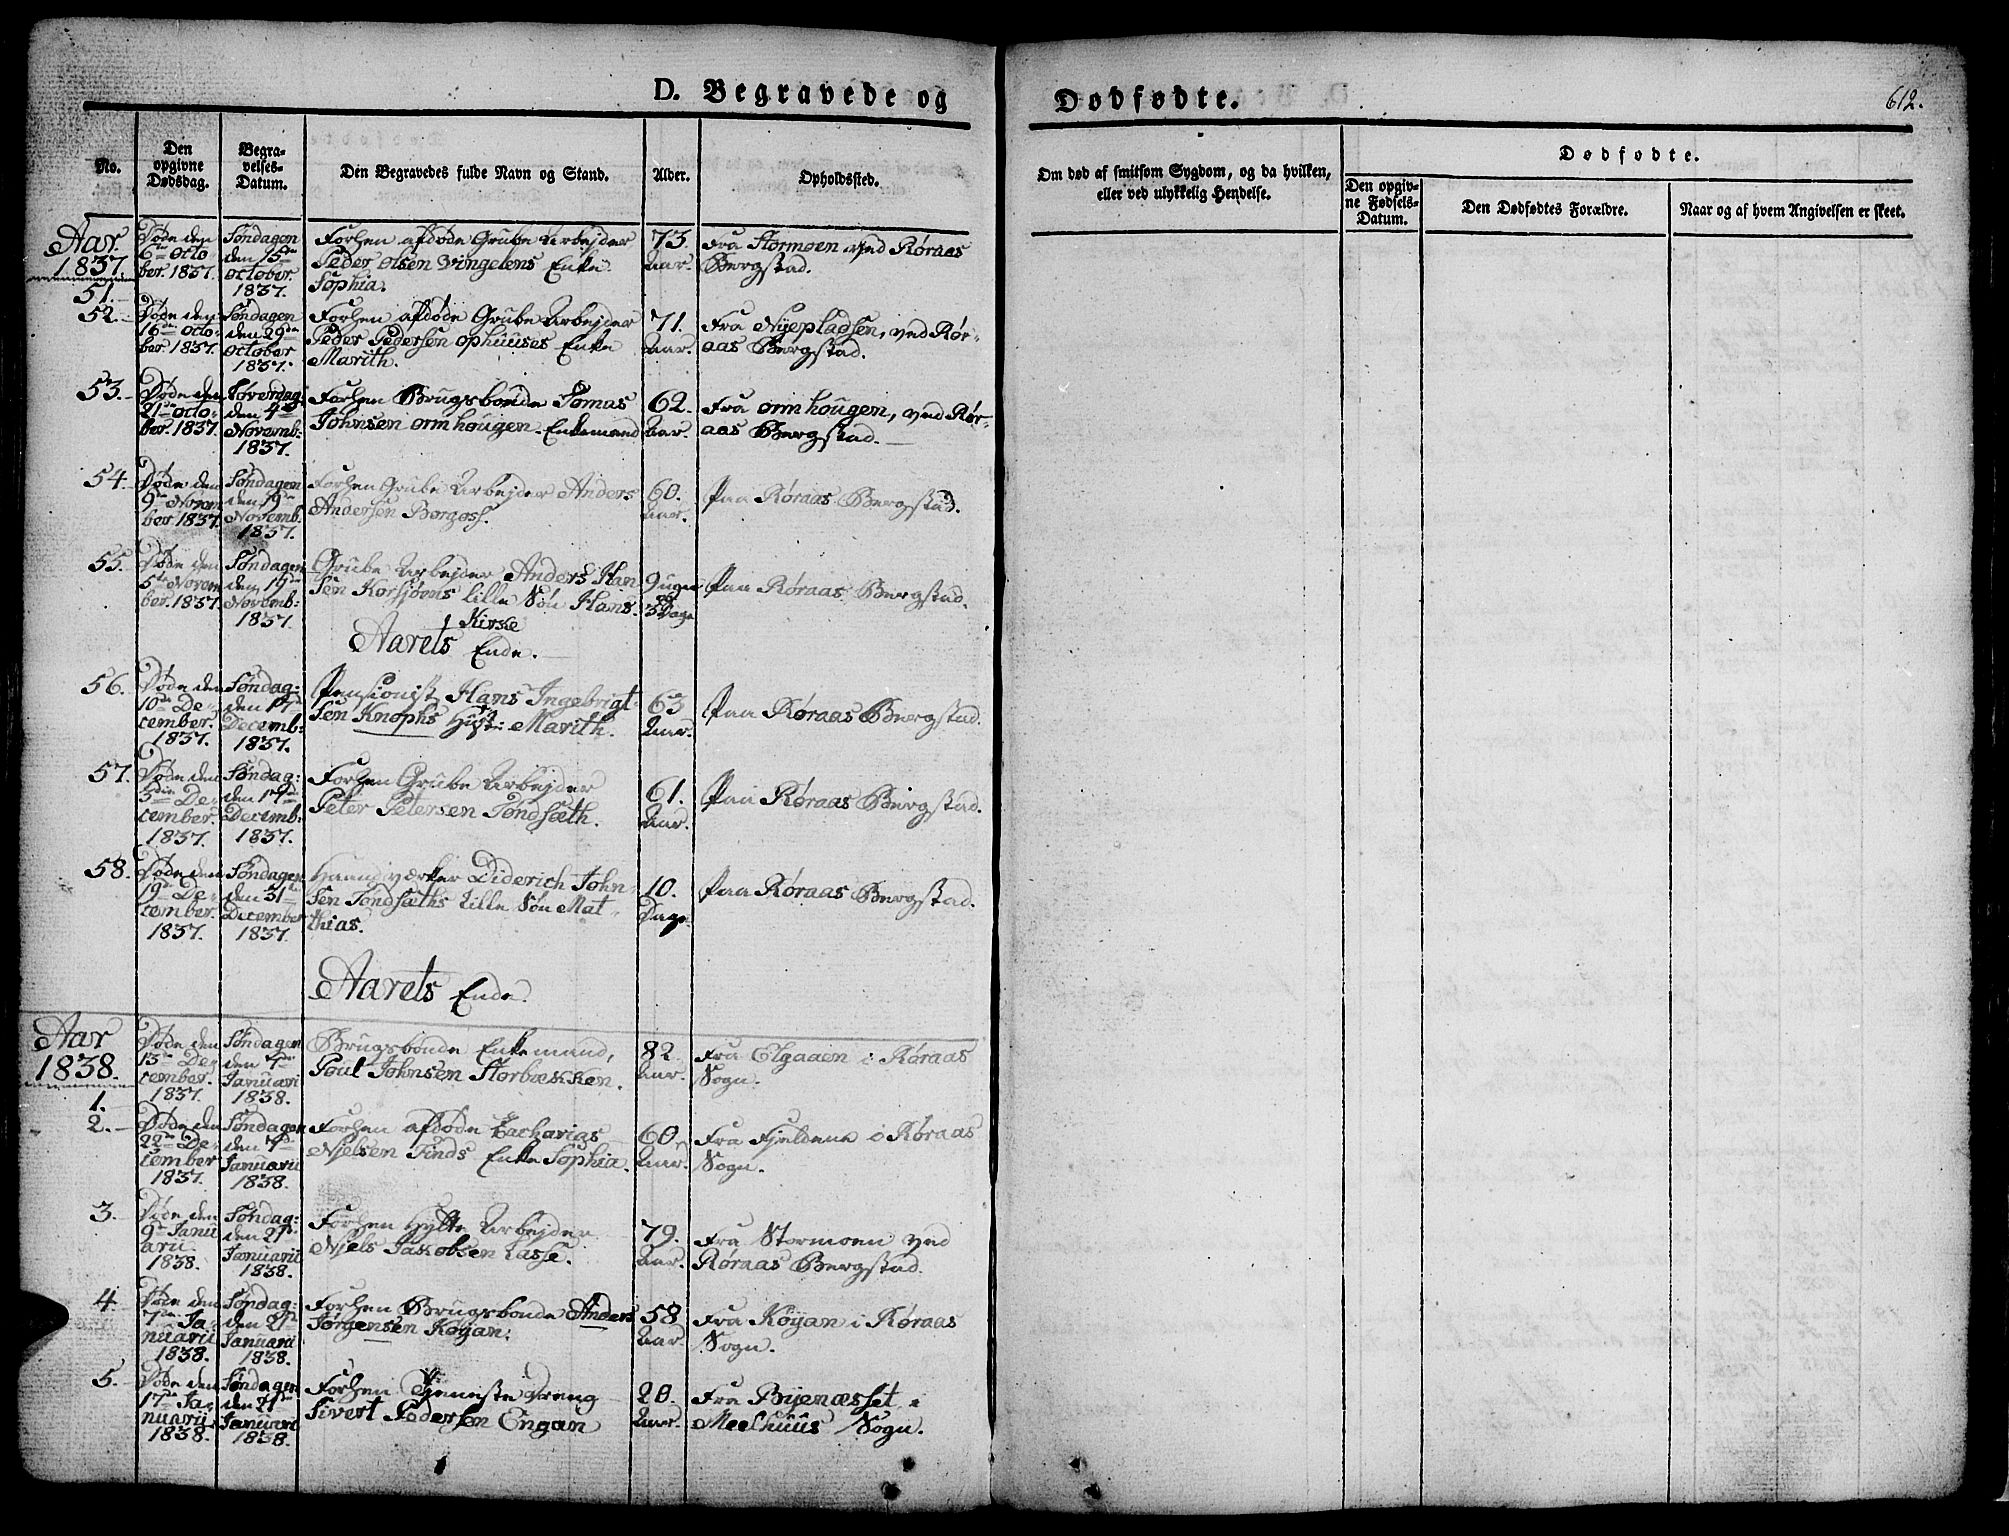 D. Begravede og
Dødfødte.
612.
No.
Den opgivne Dødsdag.
Begravelses-Datum.
Den Begravedes fulde Navn og Stand.
Alder.
Opholdssted.
Om død af smitsom Sygdom, og da hvilken,
eller ved ulykkelig Hendelse.
Dødfødte.
Den opgivne Fødsels-Datum.
Den Dødfødtes Forældre.
Naar og af hvem Angivelsen er skeet.
Aar
1837.
51.
Døde den
6te Octo
ber. 1837.
Søndagen
den 15de
October
1837.
Forhen afdøde Grube Arbejder
Peder Olsen Vingelens Enke
Sophia.
73.
Aar.
Fra Stormoen ved Røraas
Bergstad.
52.
Døde den
16de Octo-
ber. 1837.
Søndagen
den 29de
October
1837.
Forhen afdøde Grube Arbejder
Peder Pedersen Ophuuses Enke
Marith.
71.
Aar.
Fra Nyepladsen, ved Rør-
aas Bergstad.
53.
Døde den
21de Octo-
ber. 1837.
Løverdag:
den 4de
Novemb:
1837.
Forhen Brugsbonde Tomas
Johnsen Ormhougen. Enkemand
62.
Aar.
Fra Ormhougen, ved Rør-
aas Bergstad.
54.
Døde den
9de Novem
ber. 1837.
Søndagen
den 19de
Novemb.
1837.
Forhen Grube Arbejder Anders
Andersen Borgos.
60.
Aar.
Paa Røraas Bergstad.
55.
Døde den
5te Novem
ber. 1837.
Søndagen
den 19de
Novemb:
1837.
Grube Arbejder Anders Han
sen Korsjøens lille Søn Hans.
9 uger
og
3 Dage
Paa Røraas Bergstad.
Kirke
Aarets Ende.
56.
Døde den
10de De-
cember.
1837.
Søndag:
den 17de
Decemb:
1837.
Pensionist Hans Ingebrigt-
sen Knophs Hust: Marith.
63
Aar.
Paa Røraas Bergstad.
57.
Døde den
3die De-
cember.
1837.
Søndag:
den 17de
Decemb:
1837.
Forhen Grube Arbejder
Peter Petersen Tøndsæth.
61.
Aar.
Paa Røraas Bergstad.
58.
Døde den
19de De-
cember.
1837.
Søndagen
den 31te
December
1837.
Haandværker Diderich John-
sen Tøndsæths Lille Søn Mat-
hias.
10.
Dage
Paa Røraas Bergstad.
Aarets Ende.
Aar
1838.
1.
Døde den
13de De-
cember.
1837.
Søndagen
den 7de
Januari
1838.
Brugsbonde Enkemand,
Poul Johnsen Storbækken.
82.
Aar.
Fra Elgaaen i Røraas
Sogn.
2.
Døde den
22de De-
cember
1837.
Søndagen
den 7de
Januarii
1838.
Forhen afdøde Zacharias
Njelsen Finds Enke Sophia.
60.
Aar.
Fra Fjeldene i Røraas
Sogn.
3.
Døde den
9de Janu
arii
1838.
Søndag:
den 21de
Januarii
1838.
Forhen Hytte Arbejder
Njels Jakobsen Lasse.
79.
Aar.
Fra Stormoen ved
Røraas Bergstad.
4.
Døde den
7de Ja-
nuarii
1838.
Søndag:
den 21de
Januari
1838.
Forhen Brugsbonde Anders
Jørgensen Køyan.
58
Aar.
Fra Køyan i Røraas
Sogn.
5.
Døde den
17de Ja-
nuarii
1838.
Søndagen
den 21de
Januari
1838.
Forhen Tjeneste Dreng
Sivert Pedersen Engan
20.
Aar.
Fra Byenæsset i
Meelhuus Sogn.